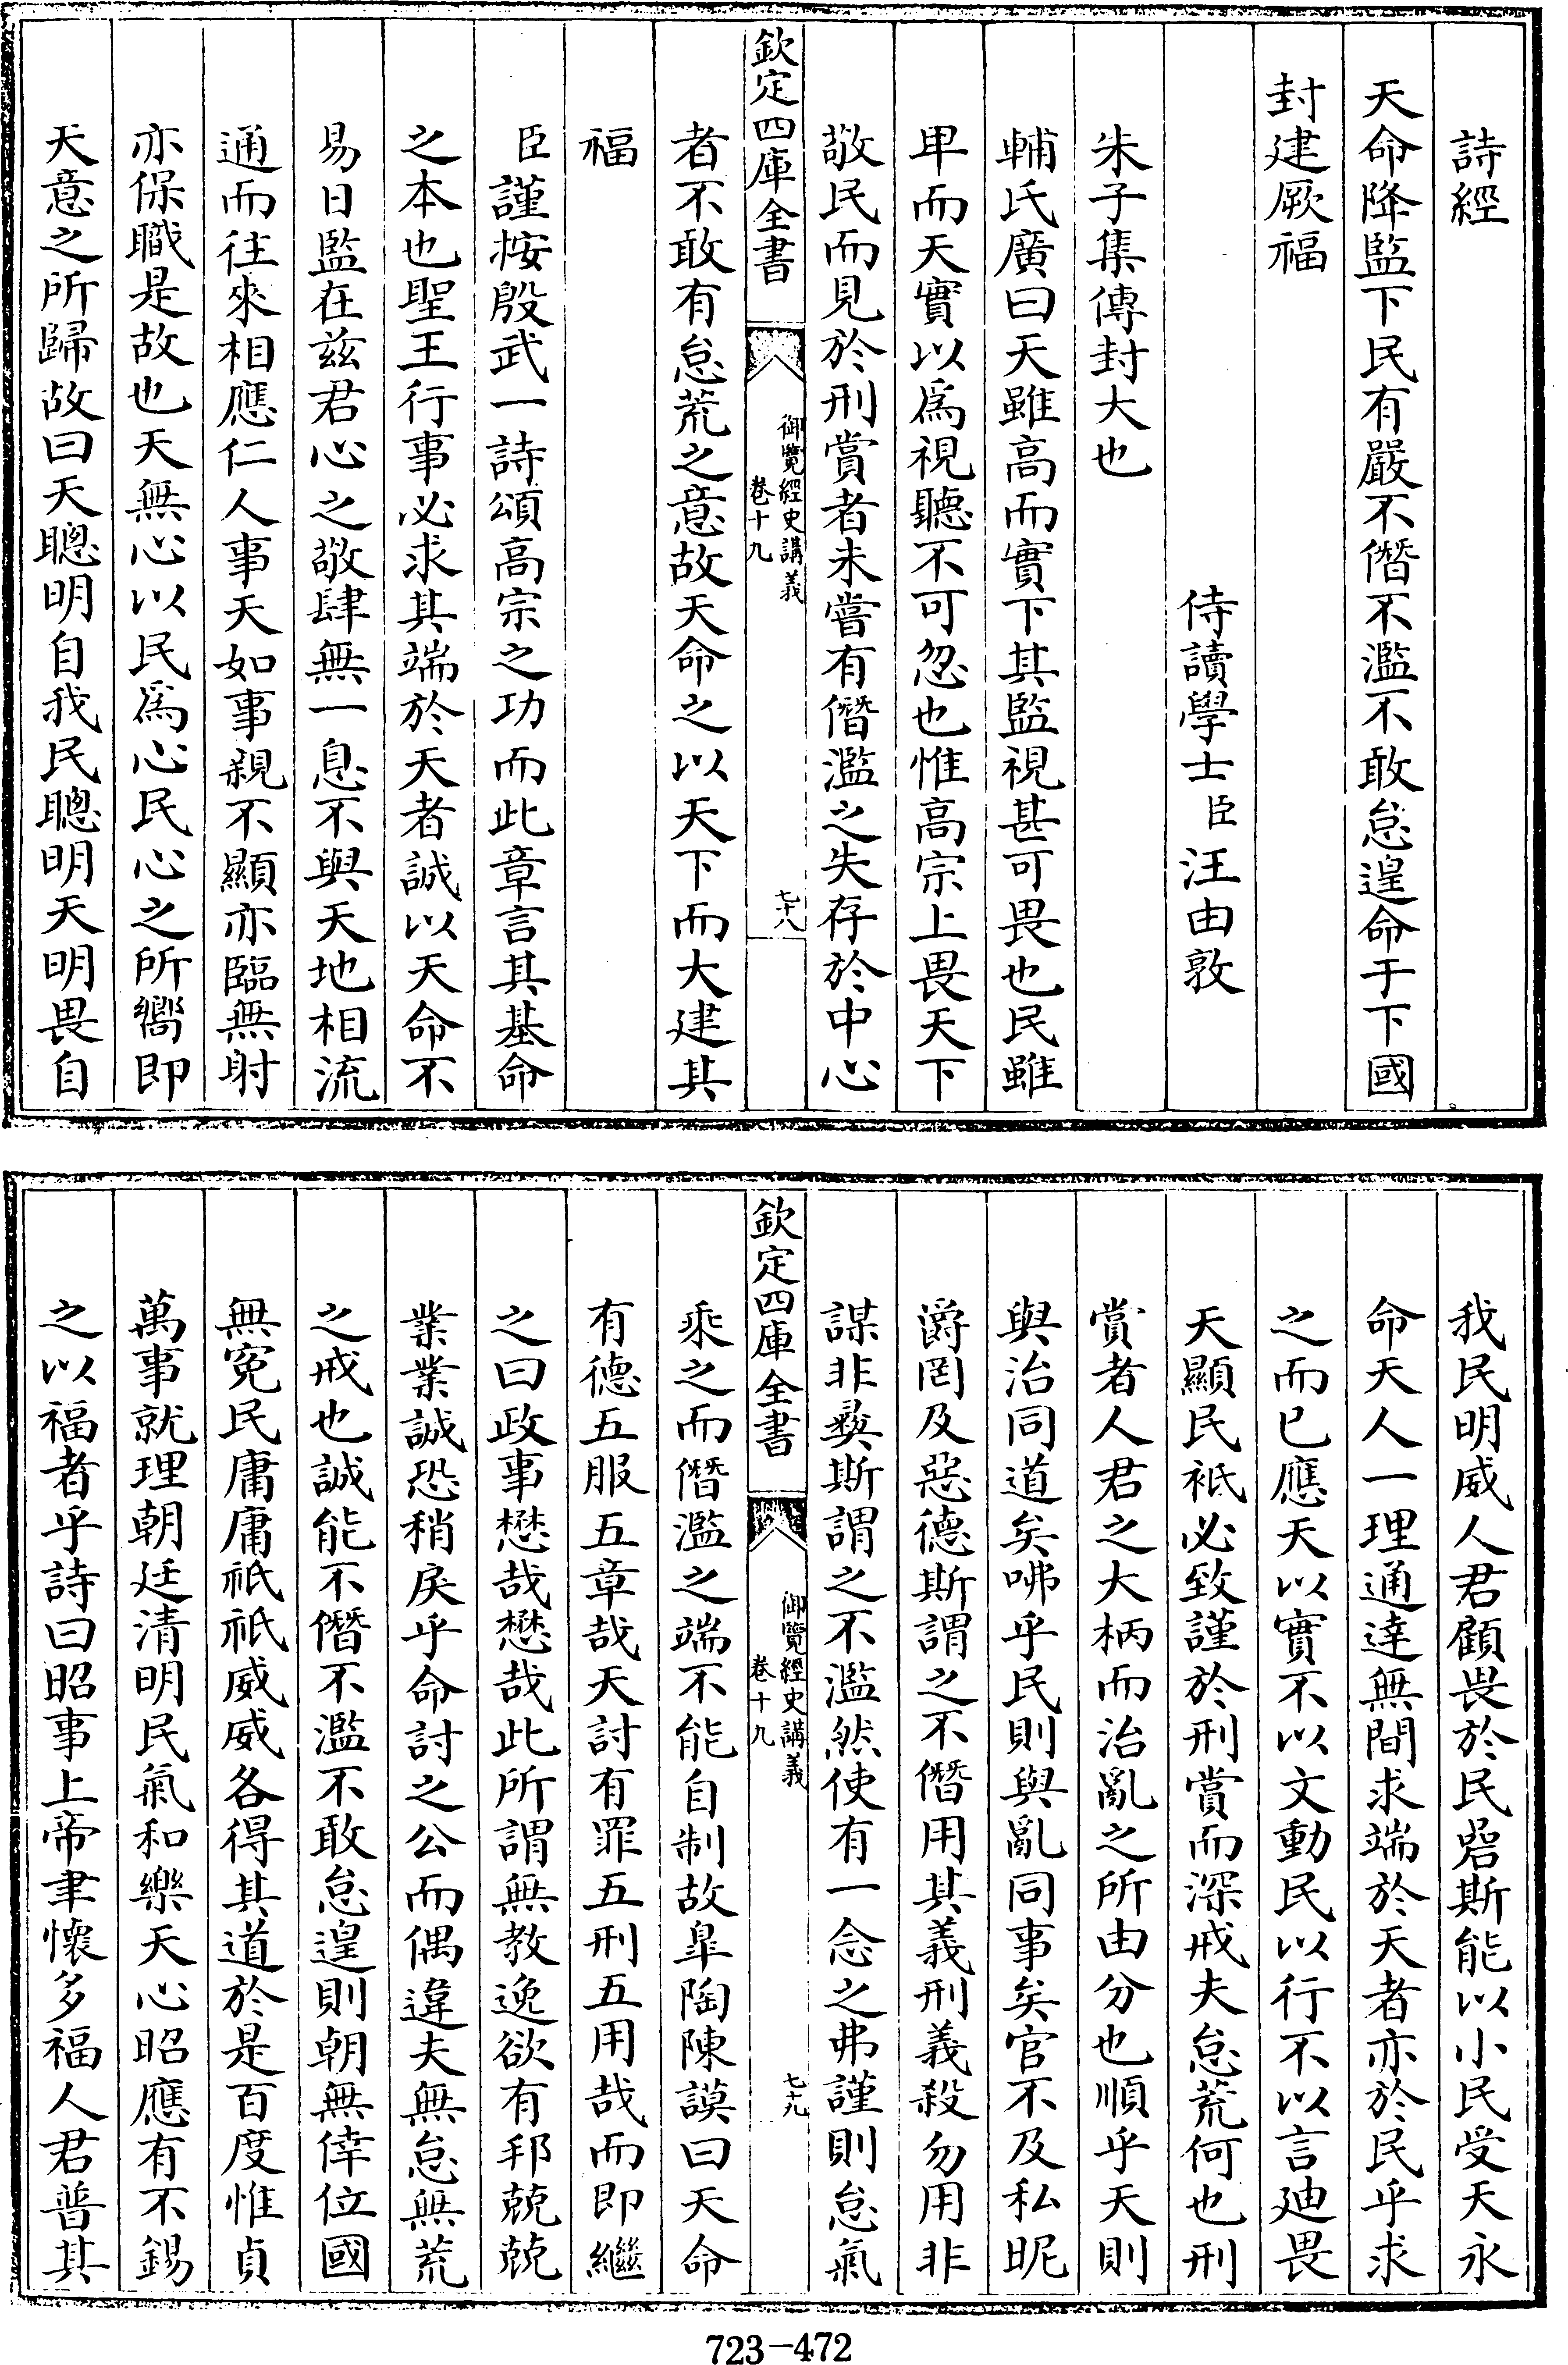 詩經
天命降監下民有嚴不僭不濫不敢怠遑命于下國
封建厥福
侍讀學士臣汪由敦
朱子集傳封大也
輔氏廣曰天雖高而實下其監視甚可畏也民雖
卑而天實以爲視聽不可忽也惟高宗上畏天下
敬民而見於刑賞者未嘗有僭濫之失存於中心
欽定四庫全書
御覽經史講義
卷十九
七十八
者不敢有怠荒之意故天命之以天下而大建其
福
臣謹按殷武一詩頌高宗之功而此章言其基命
之本也聖王行事必求其端於天者誠以天命不
易日監在兹君心之敬肆無一息不與天地相流
通而往來相應仁人事天如事親不顯亦臨無射
亦保職是故也天無心以民爲心民心之所嚮即
天意之所歸故曰天聰明自我民聰明天明畏自
我民明威人君顧畏於民碞斯能以小民受天永
命天人一理通達無間求端於天者亦於民乎求
之而已應天以實不以文動民以行不以言廸畏
天顯民祗必致謹於刑賞而深戒夫怠荒何也刑
賞者人君之大柄而治亂之所由分也順乎天則
與治同道矣咈乎民則與亂同事矣官不及私昵
爵罔及惡德斯謂之不僭用其義刑義殺勿用非
謀非彝斯謂之不濫然使有一念之弗謹則怠氣
欽定四庫全書
御覽經史講義
卷十九
七十九
乘之而僭濫之端不能自制故臯陶陳謨曰天命
有德五服五章哉天討有罪五刑五用哉而即繼
之曰政事懋哉懋哉此所謂無教逸欲有邦兢兢
業業誠恐稍戾乎命討之公而偶違夫無怠無荒
之戒也誠能不僭不濫不敢怠遑則朝無倖位國
無寃民庸庸祇祇威威各得其道於是百度惟貞
萬事就理朝廷清明民氣和樂天心昭應有不錫
之以福者乎詩曰昭事上帝聿懷多福人君普其
723-472